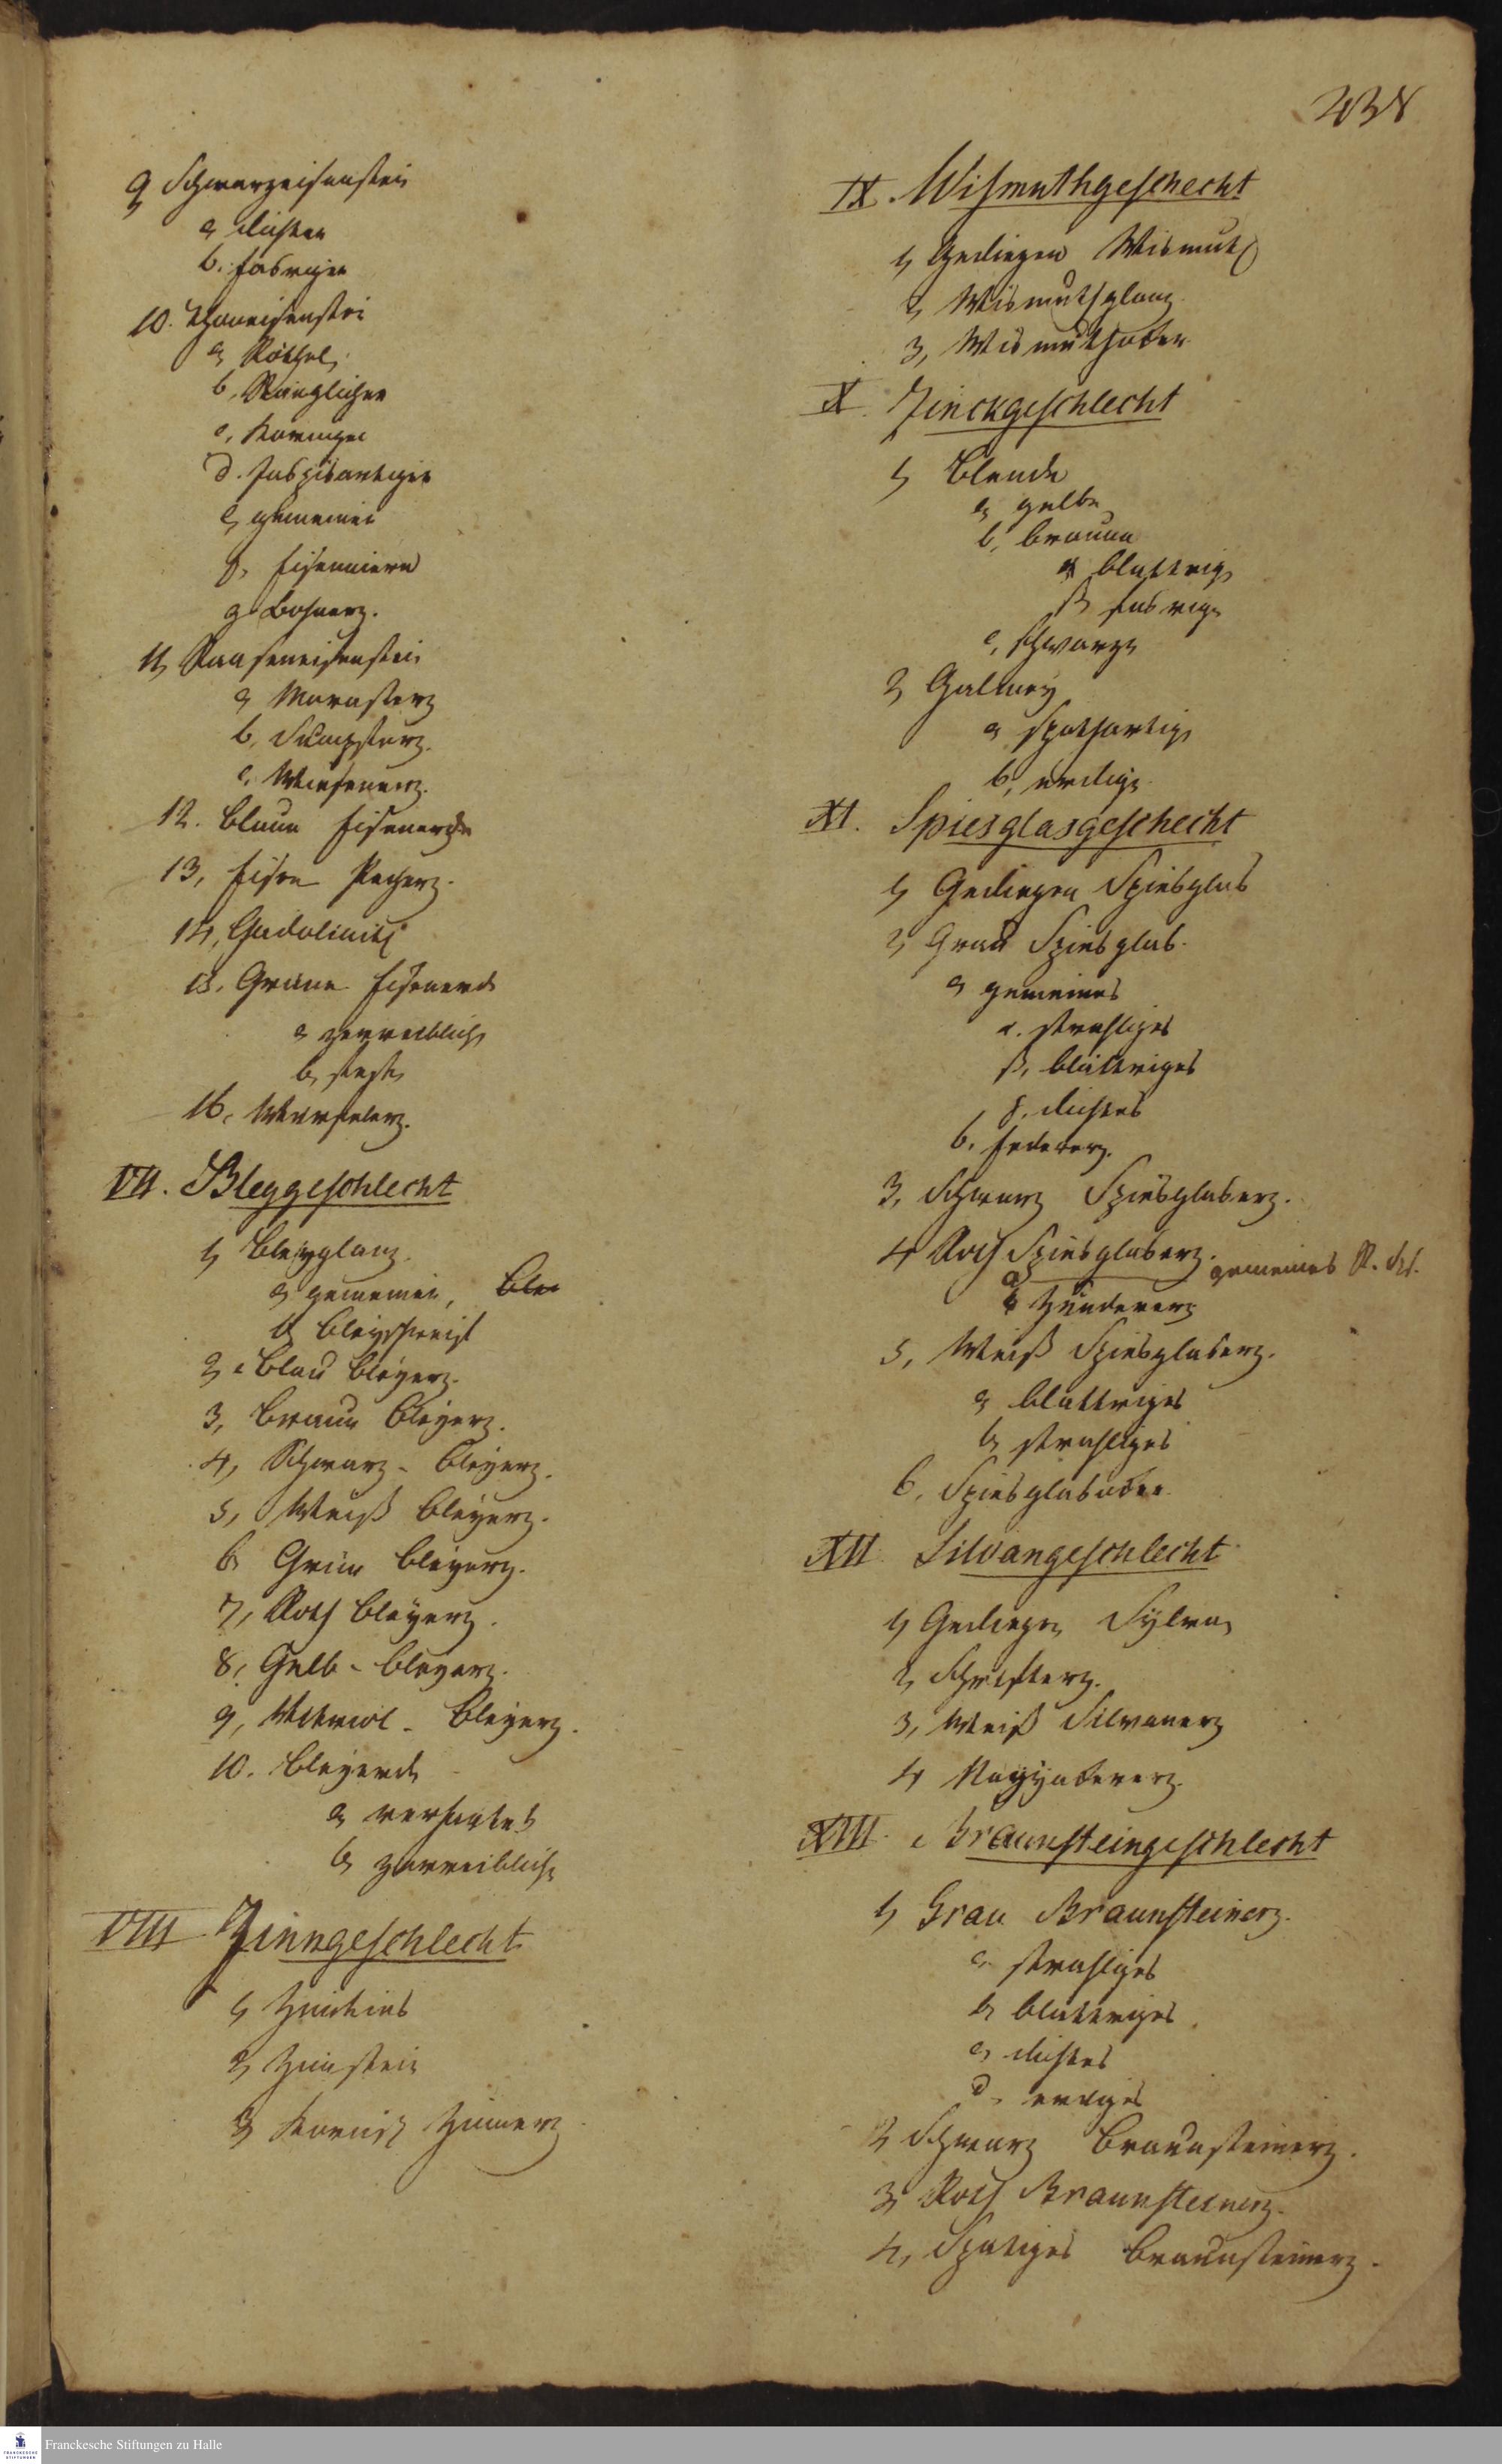 9, Schwarzeisenstein
a, dichter
b. fasriger
10. Thoneisenstein
a, Röthel
b, Stänglicher
c, Körniger
d. Jaspisartiger
e, gemeiner
f, Eisenniere
g. Bohnerz.
11, Raaseneisenstein
a, Morasterz
b, Sumpferz.
c, Wiesenerz.
12. Blaue Eisenerde
13, Eisen Pecherz.
14, Gadolinit
15. Grüne Eisenerde
a, zerreibliche
b, feste
16. Würfelerz.
VII. Bleygeschlecht
1, Bleyglanz.
a, gemeiner, Bley
b, Bleyschweif
2, Blau Bleyerz.
3, Braun Bleyerz.
4, Schwarz-Bleyerz.
5, Weiß Bleyerz.
6, Grün Bleyerz.
7, Roth Bleyerz.
8, Gelb-Bleyerz.
9, Vitriol-Bleyerz.
10. Bleyerde
a, verhärtet
b, zerreibliche
VIII Zinngeschlecht
1, Zinnkies
2, Zinnstein
3, Kornisch Zinnerz
238
IX. Wismuthgeschecht
1, Gediegen Wismuth
2, Wismuthglanz
3, Wismuthoker
X. Zinckgeschlecht
1, Blende
a, gelbe
b, braune
α blättrige
β, fasrige
c, schwarze
2, Galmey
a, spathartige
b, erdige
XI. Spiesglasgeschecht
1, Gediegen Spiesglas
2, Grau Spiesglas.
a, gemeines
α. strahliges
β, blättriges
γ. dichtes
b. Federerz.
3, Schwarz Spiesglaserz.
4 Roth Spiesglaserz. gemeines R. Sp.
a, Zundererz
5, Weiß Spiesglaserz.
a, blättriges
b, strahliges
6, Spiesglasoker
XII Silvangeschlecht
1, Gediegen Sylvan
2, Schrifterz.
3, Weiß Silvanerz
4 Nagyakererz.
XIII. Braunsteingeschlecht
1, Grau Braunsteinerz.
a, strahliges
b, blättriges
c, dichtes
d, erdiges
2, Schwarz Braunsteinerz.
3, Roth Braunsteinerz.
4, Spatiges Braunsteinerz.
FRANCKESCHE STIFTUNGEN
Franckesche Stiftungen zu Halle